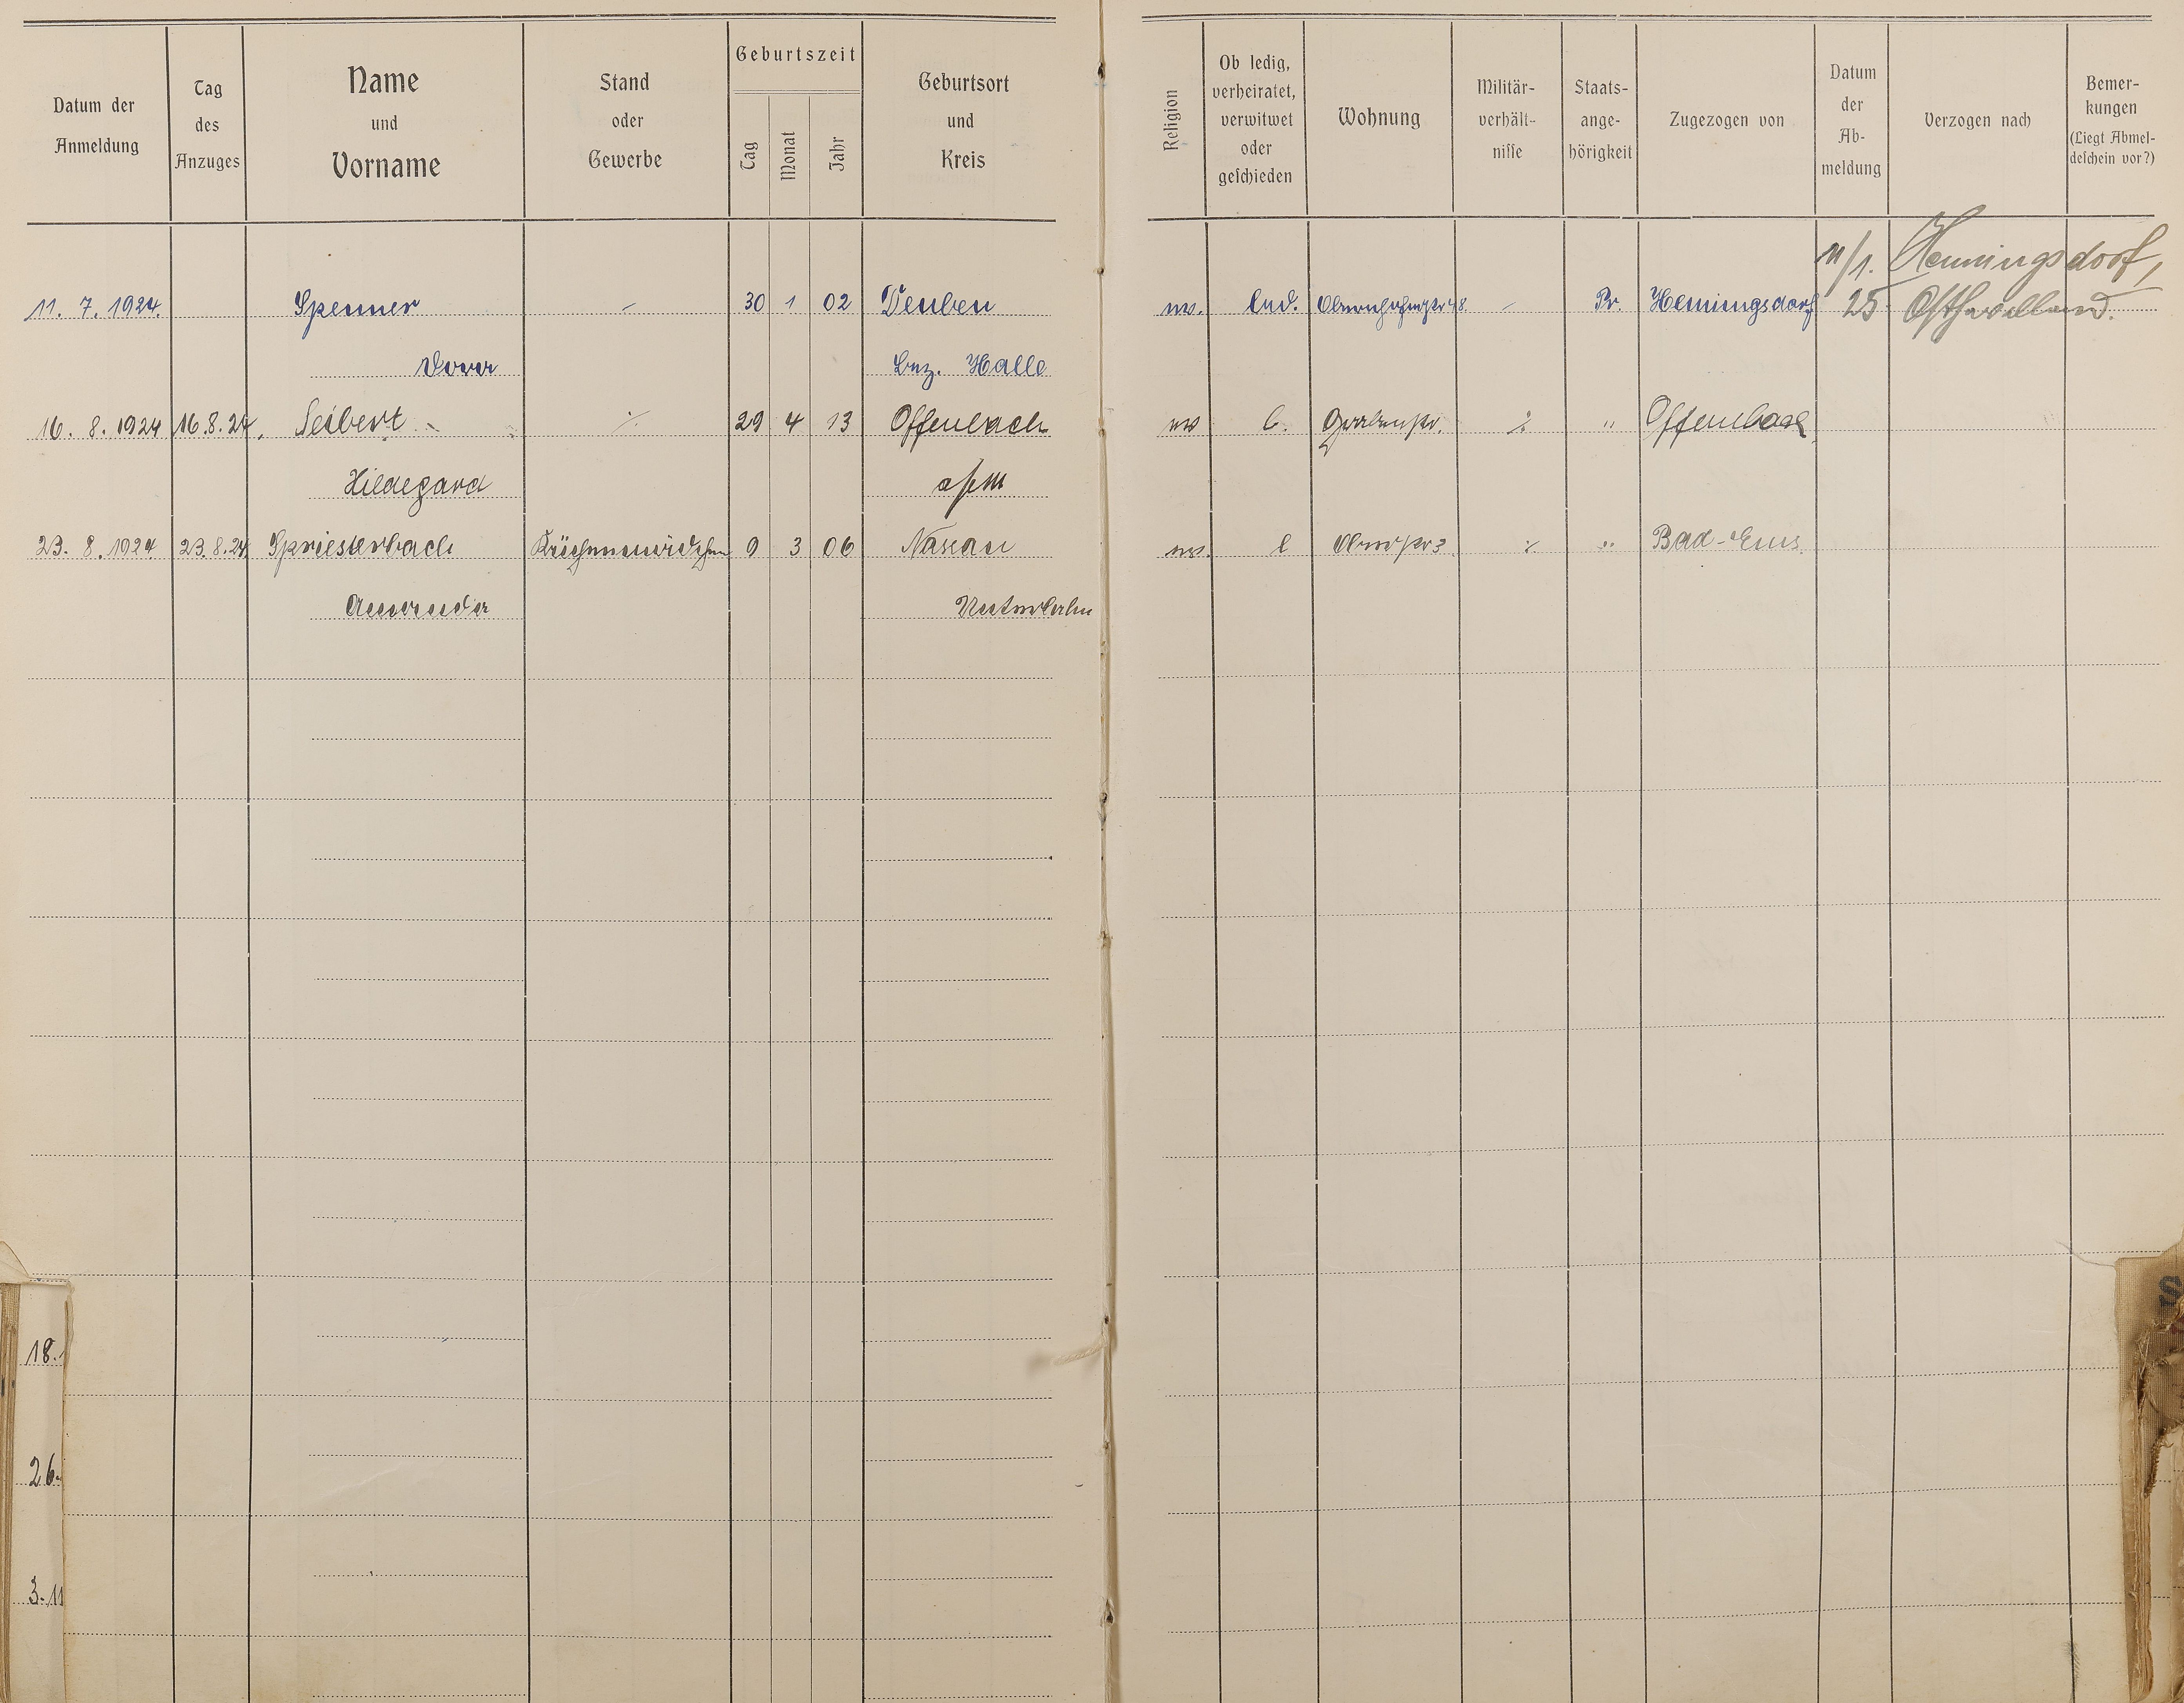 Datum der Anmeldung
Tag des Anzuges
Name und Vorname
Stand oder Gewerbe
Geburtszeit
Tag
Monat
Jahr
Geburtsort und Kreis
Religion
Ob ledig, verheiratet, verwitwet oder geschieden
Wohnung
Militär-verhält-nisse
Staats-ange-hörigkeit
Zugezogen von
Datum der Ab-meldung
Verzogen nach
Bemer-kungen
(Liegt Abmel-deschein vor?)
11/1. Henningsdorf,
11. 7. 1924. Spenner – 30 1 02 Teuben ev. led. – Pr. Henningsdorf 25 Osthavelland.
Dora Bez. Halle
16. 8. 1924 16.8.24. Seibert ⁒ 29 4 13 Offenbach ev l. Grabenstr. ⁒ " Offenbach
Hildegard a/M
23. 8. 1924 23.8.24 Spriesterbach Küchenmädchen 9 3 06 Nassau ev. l ⁒ " Bad-Ems.
Amanda Unterlahn
18.
26.
3.11
S